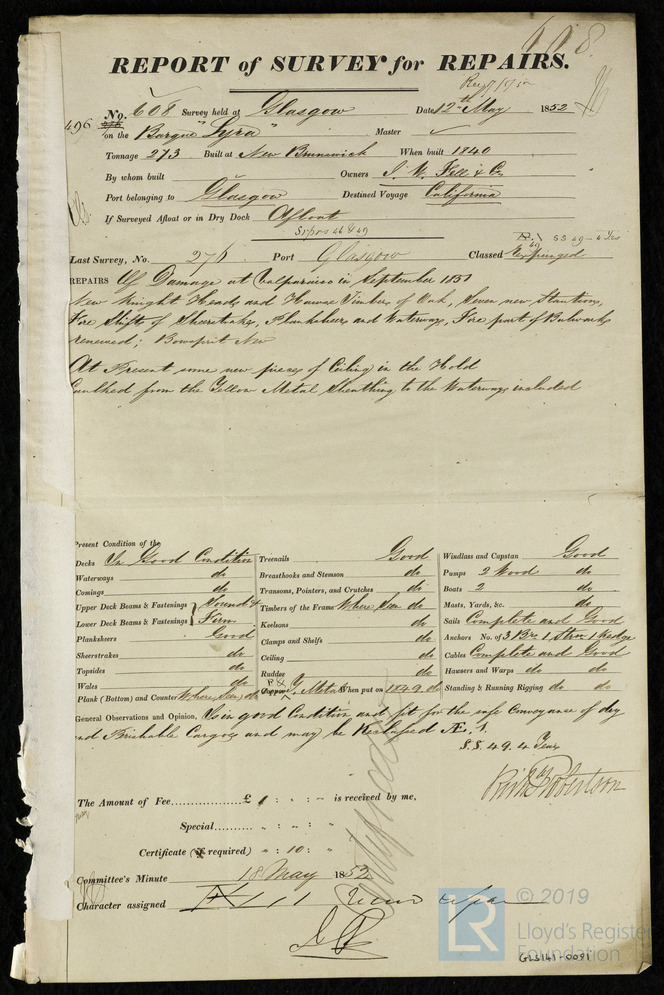 608
REPORT of SURVEY for REPAIRS.
496
No. 608 Survey held at Glasgow Date 12th May 1852
on the Barque "Lyra" Master
Tonnage 273 Built at New Brunswick When built 1840
By whom built Owners J. W. Fell & Co
Port belonging to Glasgow Destined Voyage California
If Surveyed Afloat or in Dry Dock Afloat
SS 49 - 4 Yrs
Last Survey, No. 276 Port Glasgow Classed Expunged
REPAIRS Of Damage at Valparaiso in September 1851
New Knight Heads and Hawse Timbers of Oak, Seven new Stantions,
Fore Shift of Sheerstrakes, Planksheer, and Waterways, Fore part of Bulwarks
renewed; Bowsprit New
At Present some new pieces of Ceiling in the Hold
Caulked from the Yellow Metal Sheathing to the Waterways included
Present Condition of the
Decks In Good Condition
Waterways do
Comings do
Upper Deck Beams & Fastenings Sound &
Lower Deck Beams & Fastenings Firm
Planksheers Good
Sheerstrakes do
Topsides do
Wales do
Plank (Bottom) and Counter Where Seen do
Treenails Good
Breasthooks and Stemson do
Transoms, Pointers, and Crutches do
Timbers of the Frame Where Seen do
Keelsons do
Clamps and Shelfs do
Ceiling do
Rudder do
Copper Y. Metal When put on 1849 do
Windlass and Capstan Good
Pumps 2 Wood do
Boats 2 do
Masts, Yards, &c. do
Sails Complete and Good
Anchors No. of 3 Brs 1 Strm 1 Kedge
Cables Complete and Good
Hawsers and Warps do do
Standing & Running Rigging do do
General Observations and Opinion, Is in good Condition and fit for the safe Conveyance of dry
and Perishable Cargoes and may be Reclassed Æ. 1.
S.S. 49. 4 Years
Robertson
The Amount of Fee £ 1 : : - is received by me,
Special : :
Certificate (if required) : 10 :
Committee's Minute 18 May 1852
Character assigned Æ 1
LR
© 2019
Lloyd's Register
Foundation
GLS141-0091